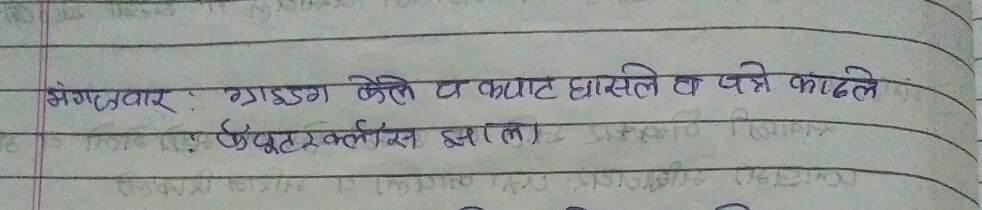 मंगळवार : ग्राइडग केले व कपाट घासले व पत्रे काढले
: कंप्यूटर क्लास झाला